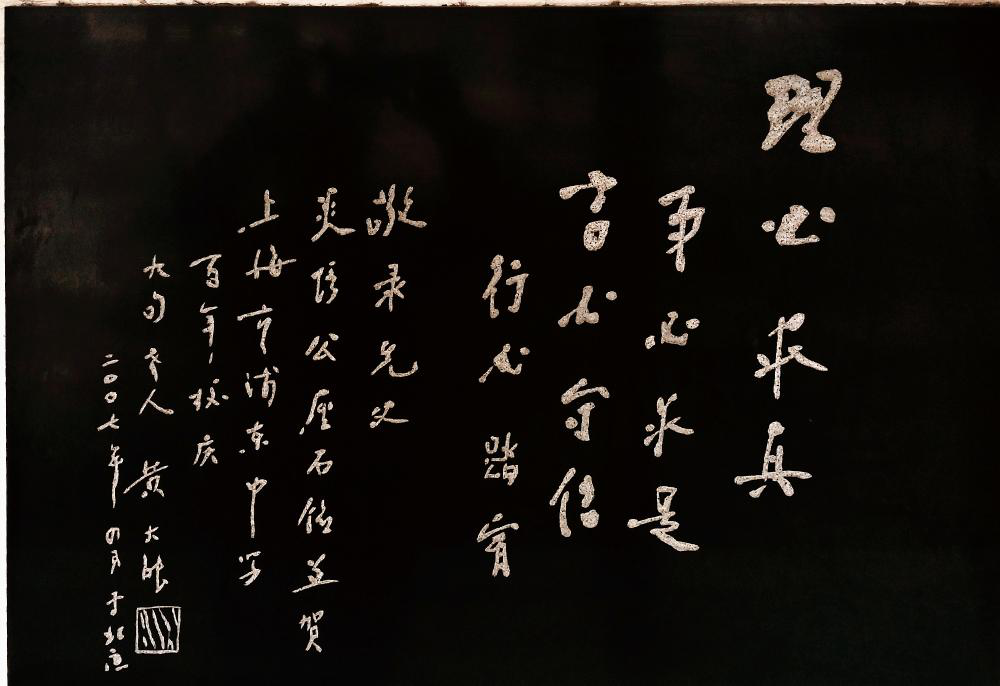 理必求真
事必求是
言必守信
行必踏实
敬录先父
炎培公座右铭并贺
上海市浦东中学
百年校庆
九旬老人 黄大能
二〇〇七年四月于北京